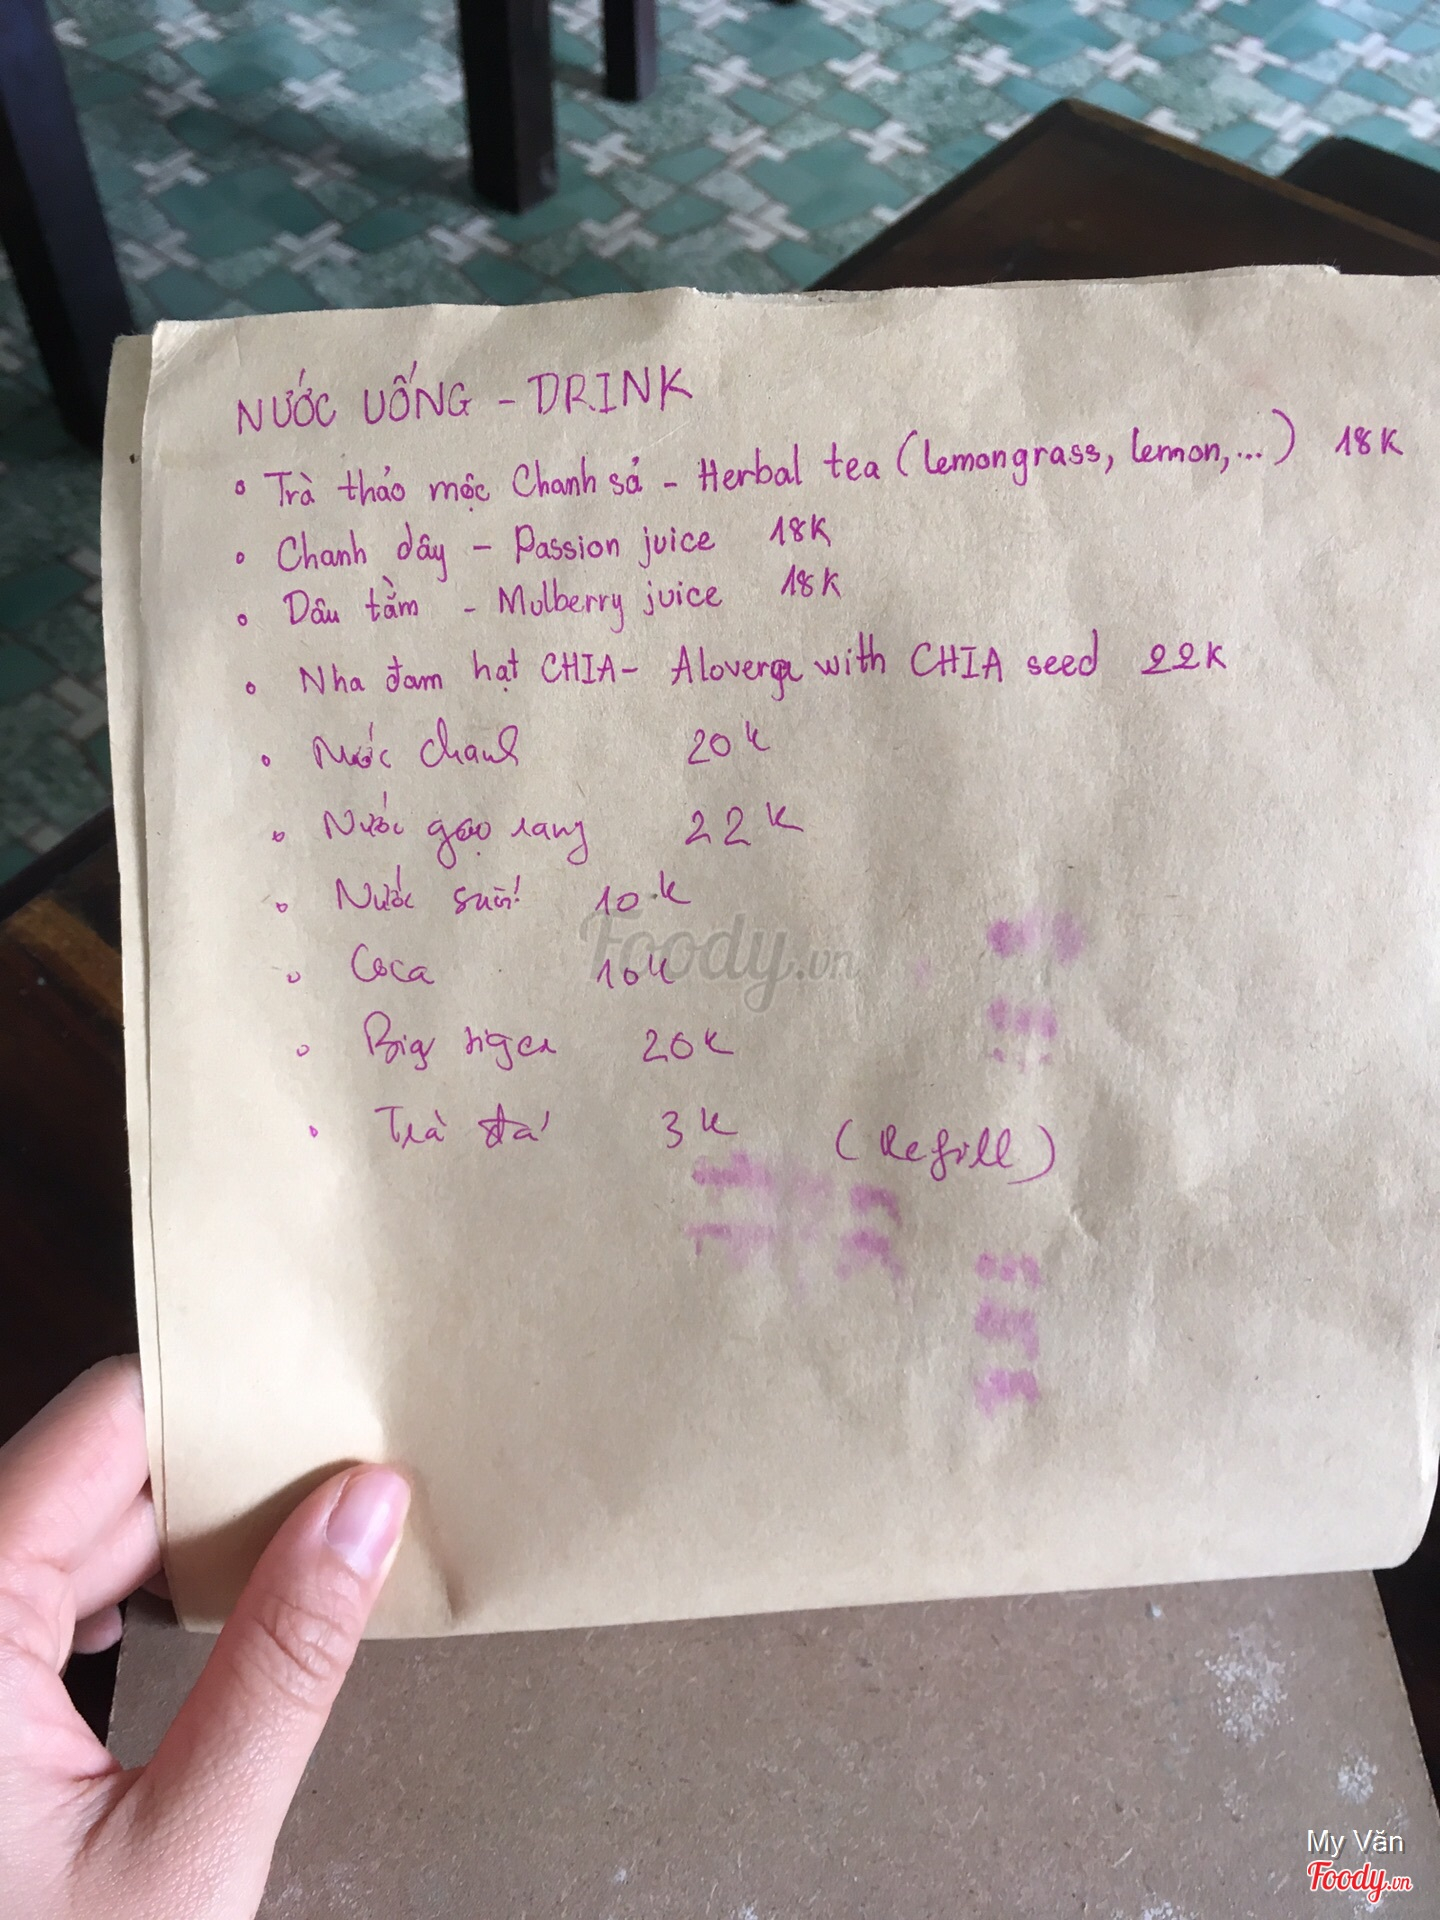 NƯỚC UỐNG - DRINK
Trà thảo mộc Chanh sả - Herbal tea (lemongrass, lemon,...) 18K
Chanh dây - Passion juice 18K
Dâu tằm - Mulberry juice 18K
Nha đam hạt CHIA - Alovera with CHIA seed 22K
Nước chanh 20K
Nước gạo rang 22K
Nước suối 10K
Foody.vn
Coca 16K
Big 20K
Trà đá 3K (Refill)
My Văn
Foody.vn